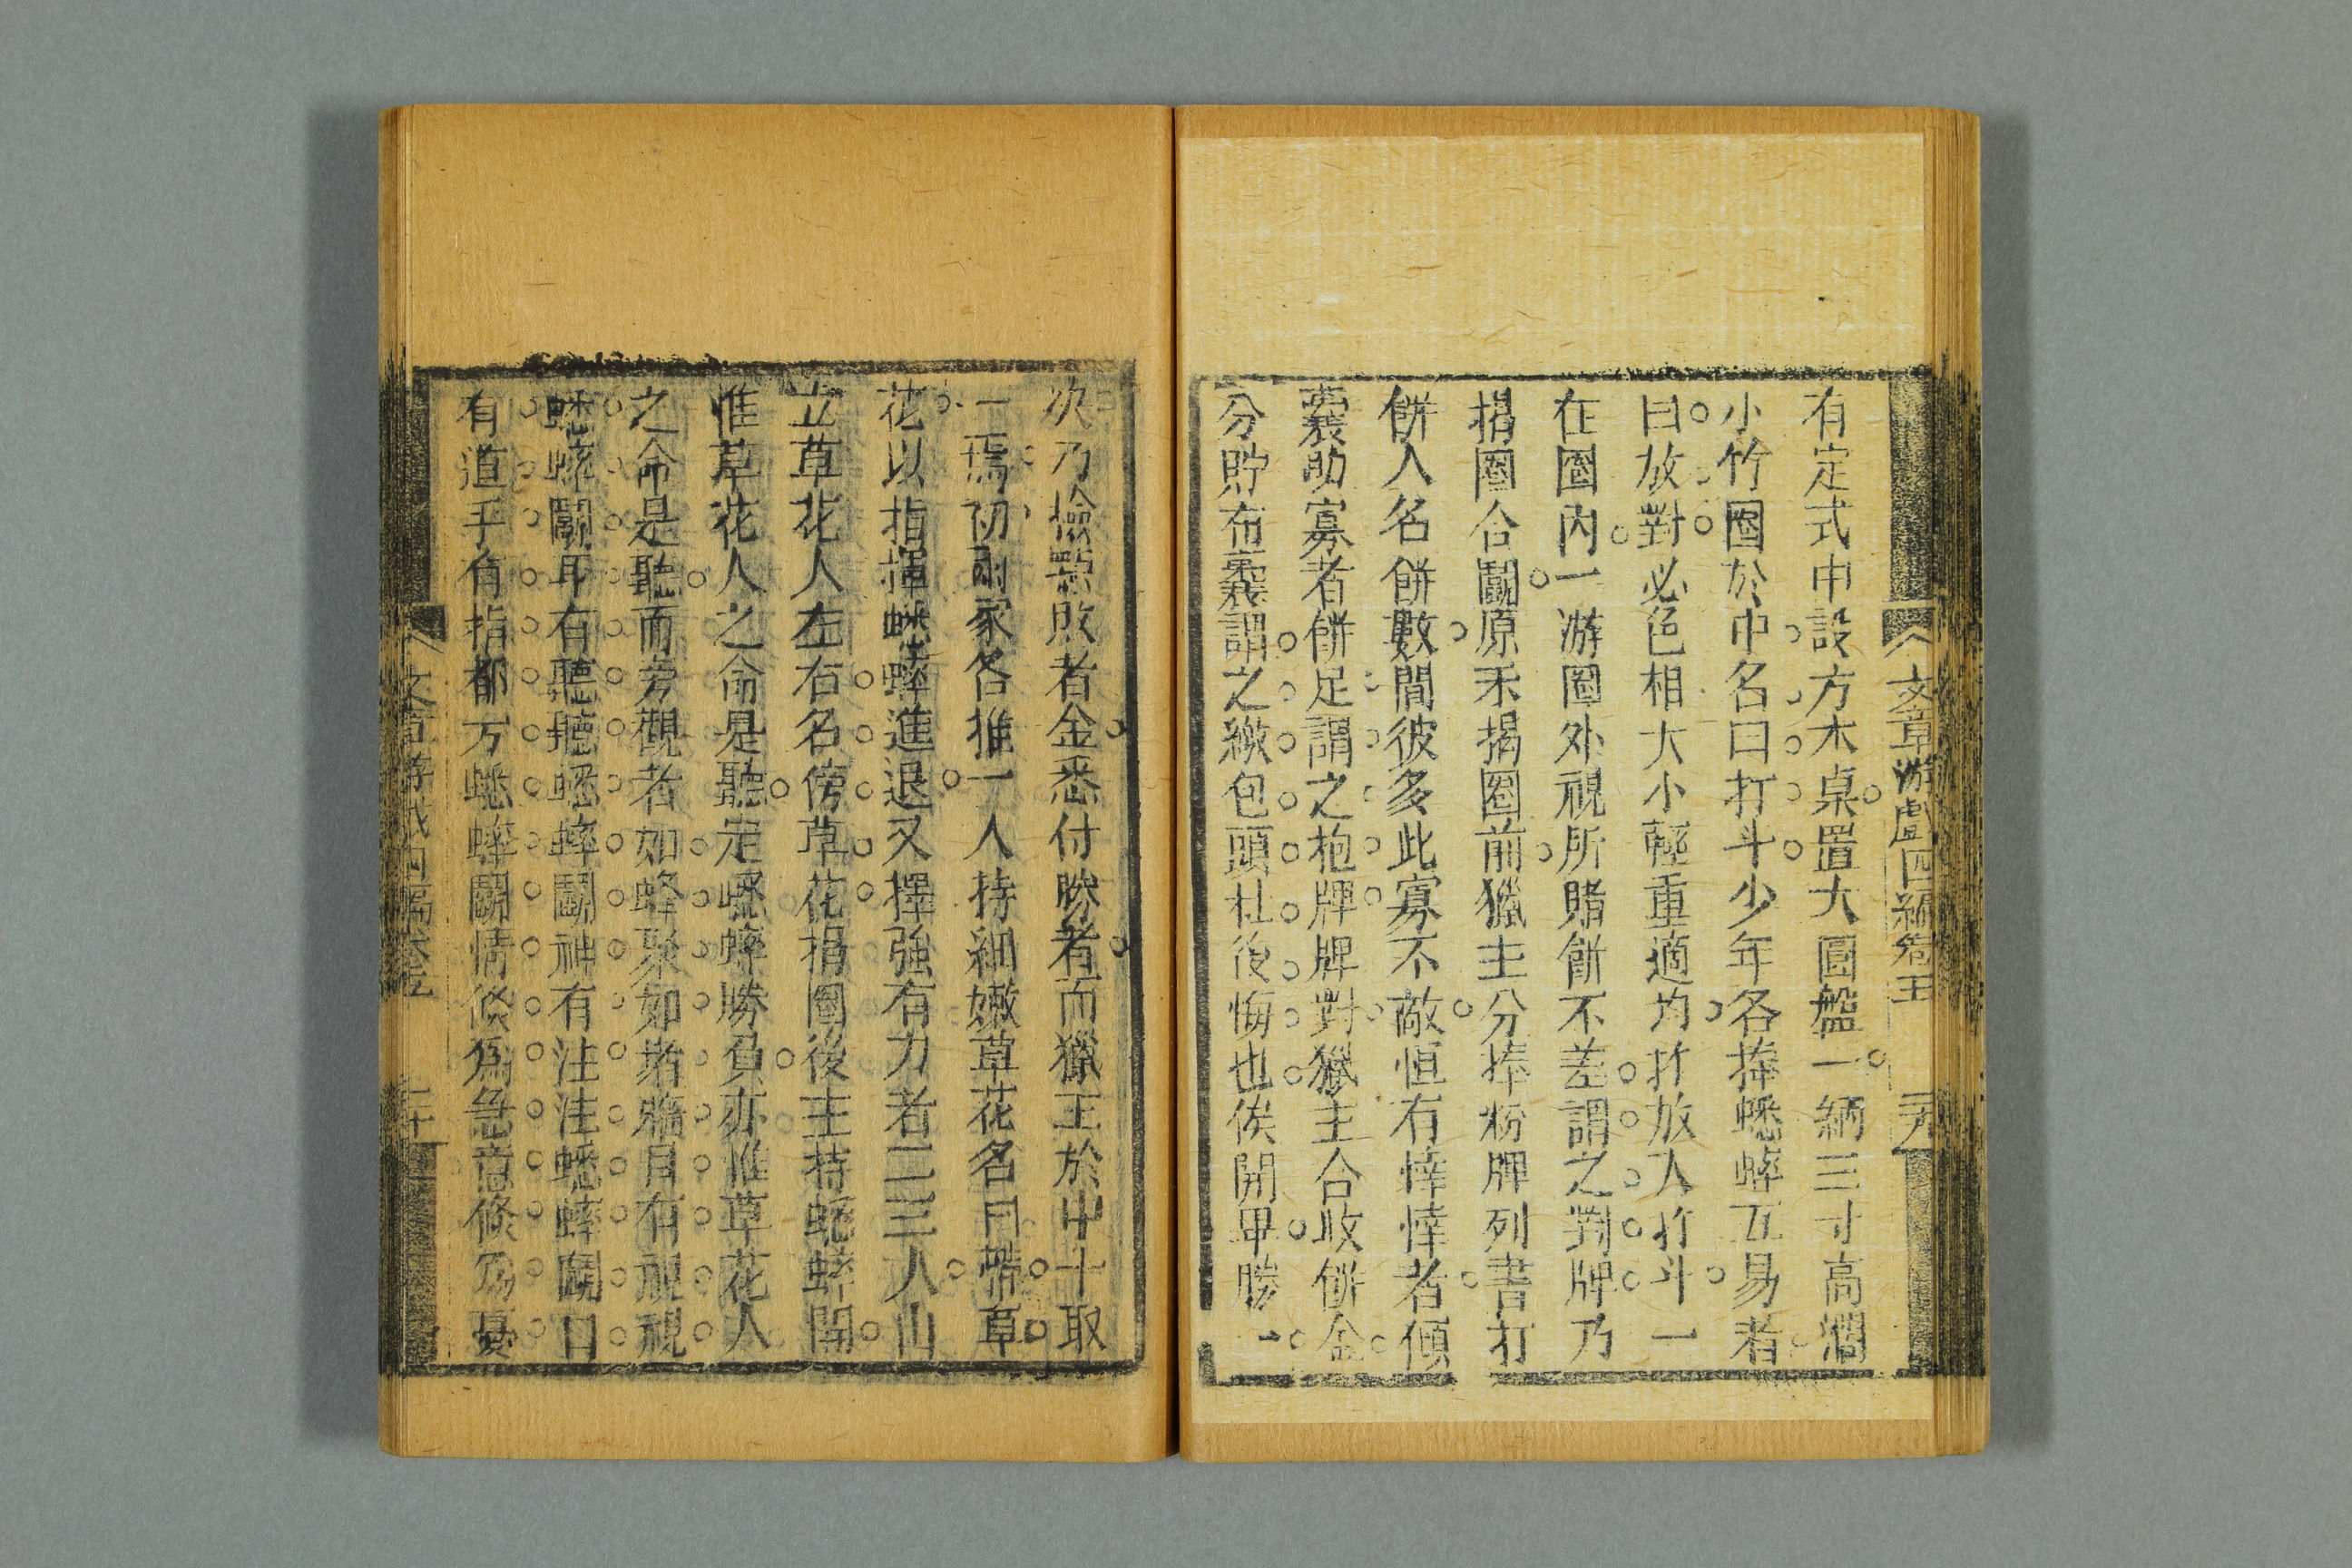 文章游戲四編卷五
二九
有定式中設方木桌置大圓盤一綳三寸高濶
小竹圈於中名曰打斗少年各捧蟋蟀互易者
曰放對必色相大小輕重適均拃放入拃斗一
在圈內一游圈外視所賭餅不差謂之對牌乃
揭圈合鬬原未揭圈前獵主分捧粉牌列書打
餅人名餅數間彼多此寡不敵恒有悻悻者傾
囊助寡者餅足謂之枹牌牌對獵主合收餅金
分貯布囊謂之繳包頭杜後悔也俟開甲勝一
次乃撿點敗者金悉付勝者而獵主於中十取
一焉初兩家各推一人持細嫩草花名曰幫草
花以指揮蟋蟀進退又擇強有力者二三人山
立草花人左右名傍草花揭圈後主持蟋蟀開
惟草花人之命是聽定蟋蟀勝負亦惟草花人
之命是聽而旁觀者如蜂聚如堵牆目有視視
蟋蟀鬬耳有聽聽蟋蟀鬬神有注注蟋蟀鬬口
有道手有指都万蟋蟀鬬情倏爲急意倏爲憂
文章游戲四編卷五
三十